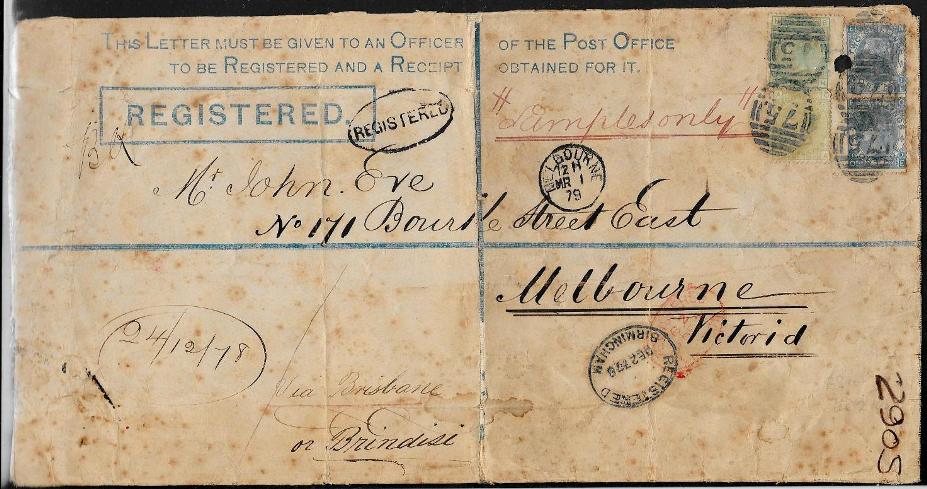 THIS LETTER MUST BE GIVEN TO AN OFFICER OF THE POST OFFICE
TO BE REGISTERED AND A RECEIPT OBTAINED FOR IT.
REGISTERED.
REGISTERED
"Samples only"
MELBOURNE
MR 1
79
Mr John. Eve
No 171 Bourke Street East
Melbourne
Victoria
24/12/78
REGISTERED
BIRMINGHAM
Via Brisbane
or Brindisi
2905
75
75